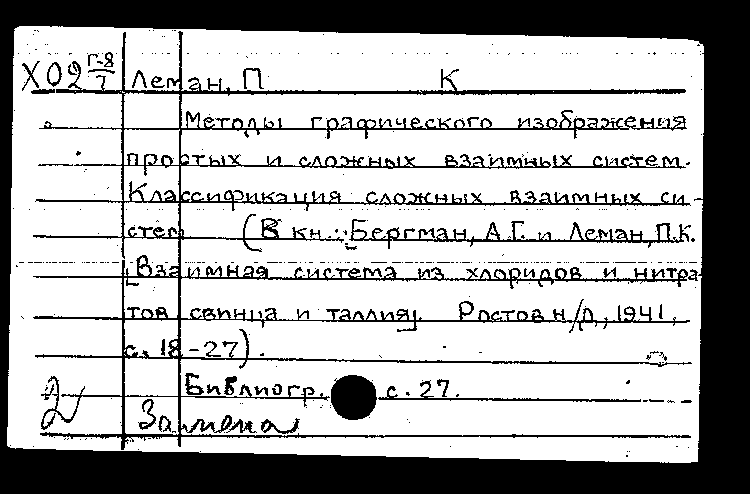 Х02 Г-8/7 Леман, П К
Методы графического изображения
простых и сложных взаимных систем.
Классификация сложных взаимных си-
стем (В кн.: Бергман, А.Г. и Леман, П.К.
[Взаимная система из хлоридов и нитра-
тов свинца и таллия]. Ростов н/Д, 1941,
с. 18-27).
Библиогр. с. 27.
2 Замена